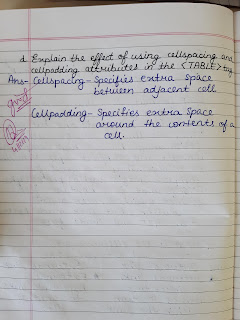 d. Explain the effect of using cellspacing and
cellpadding attributes in the <TABLE> tag
Ans- Cellspacing - Specifies extra Space
between adjacent cell
Cellpadding - Specifies extra Space
around the contents of a
cell.